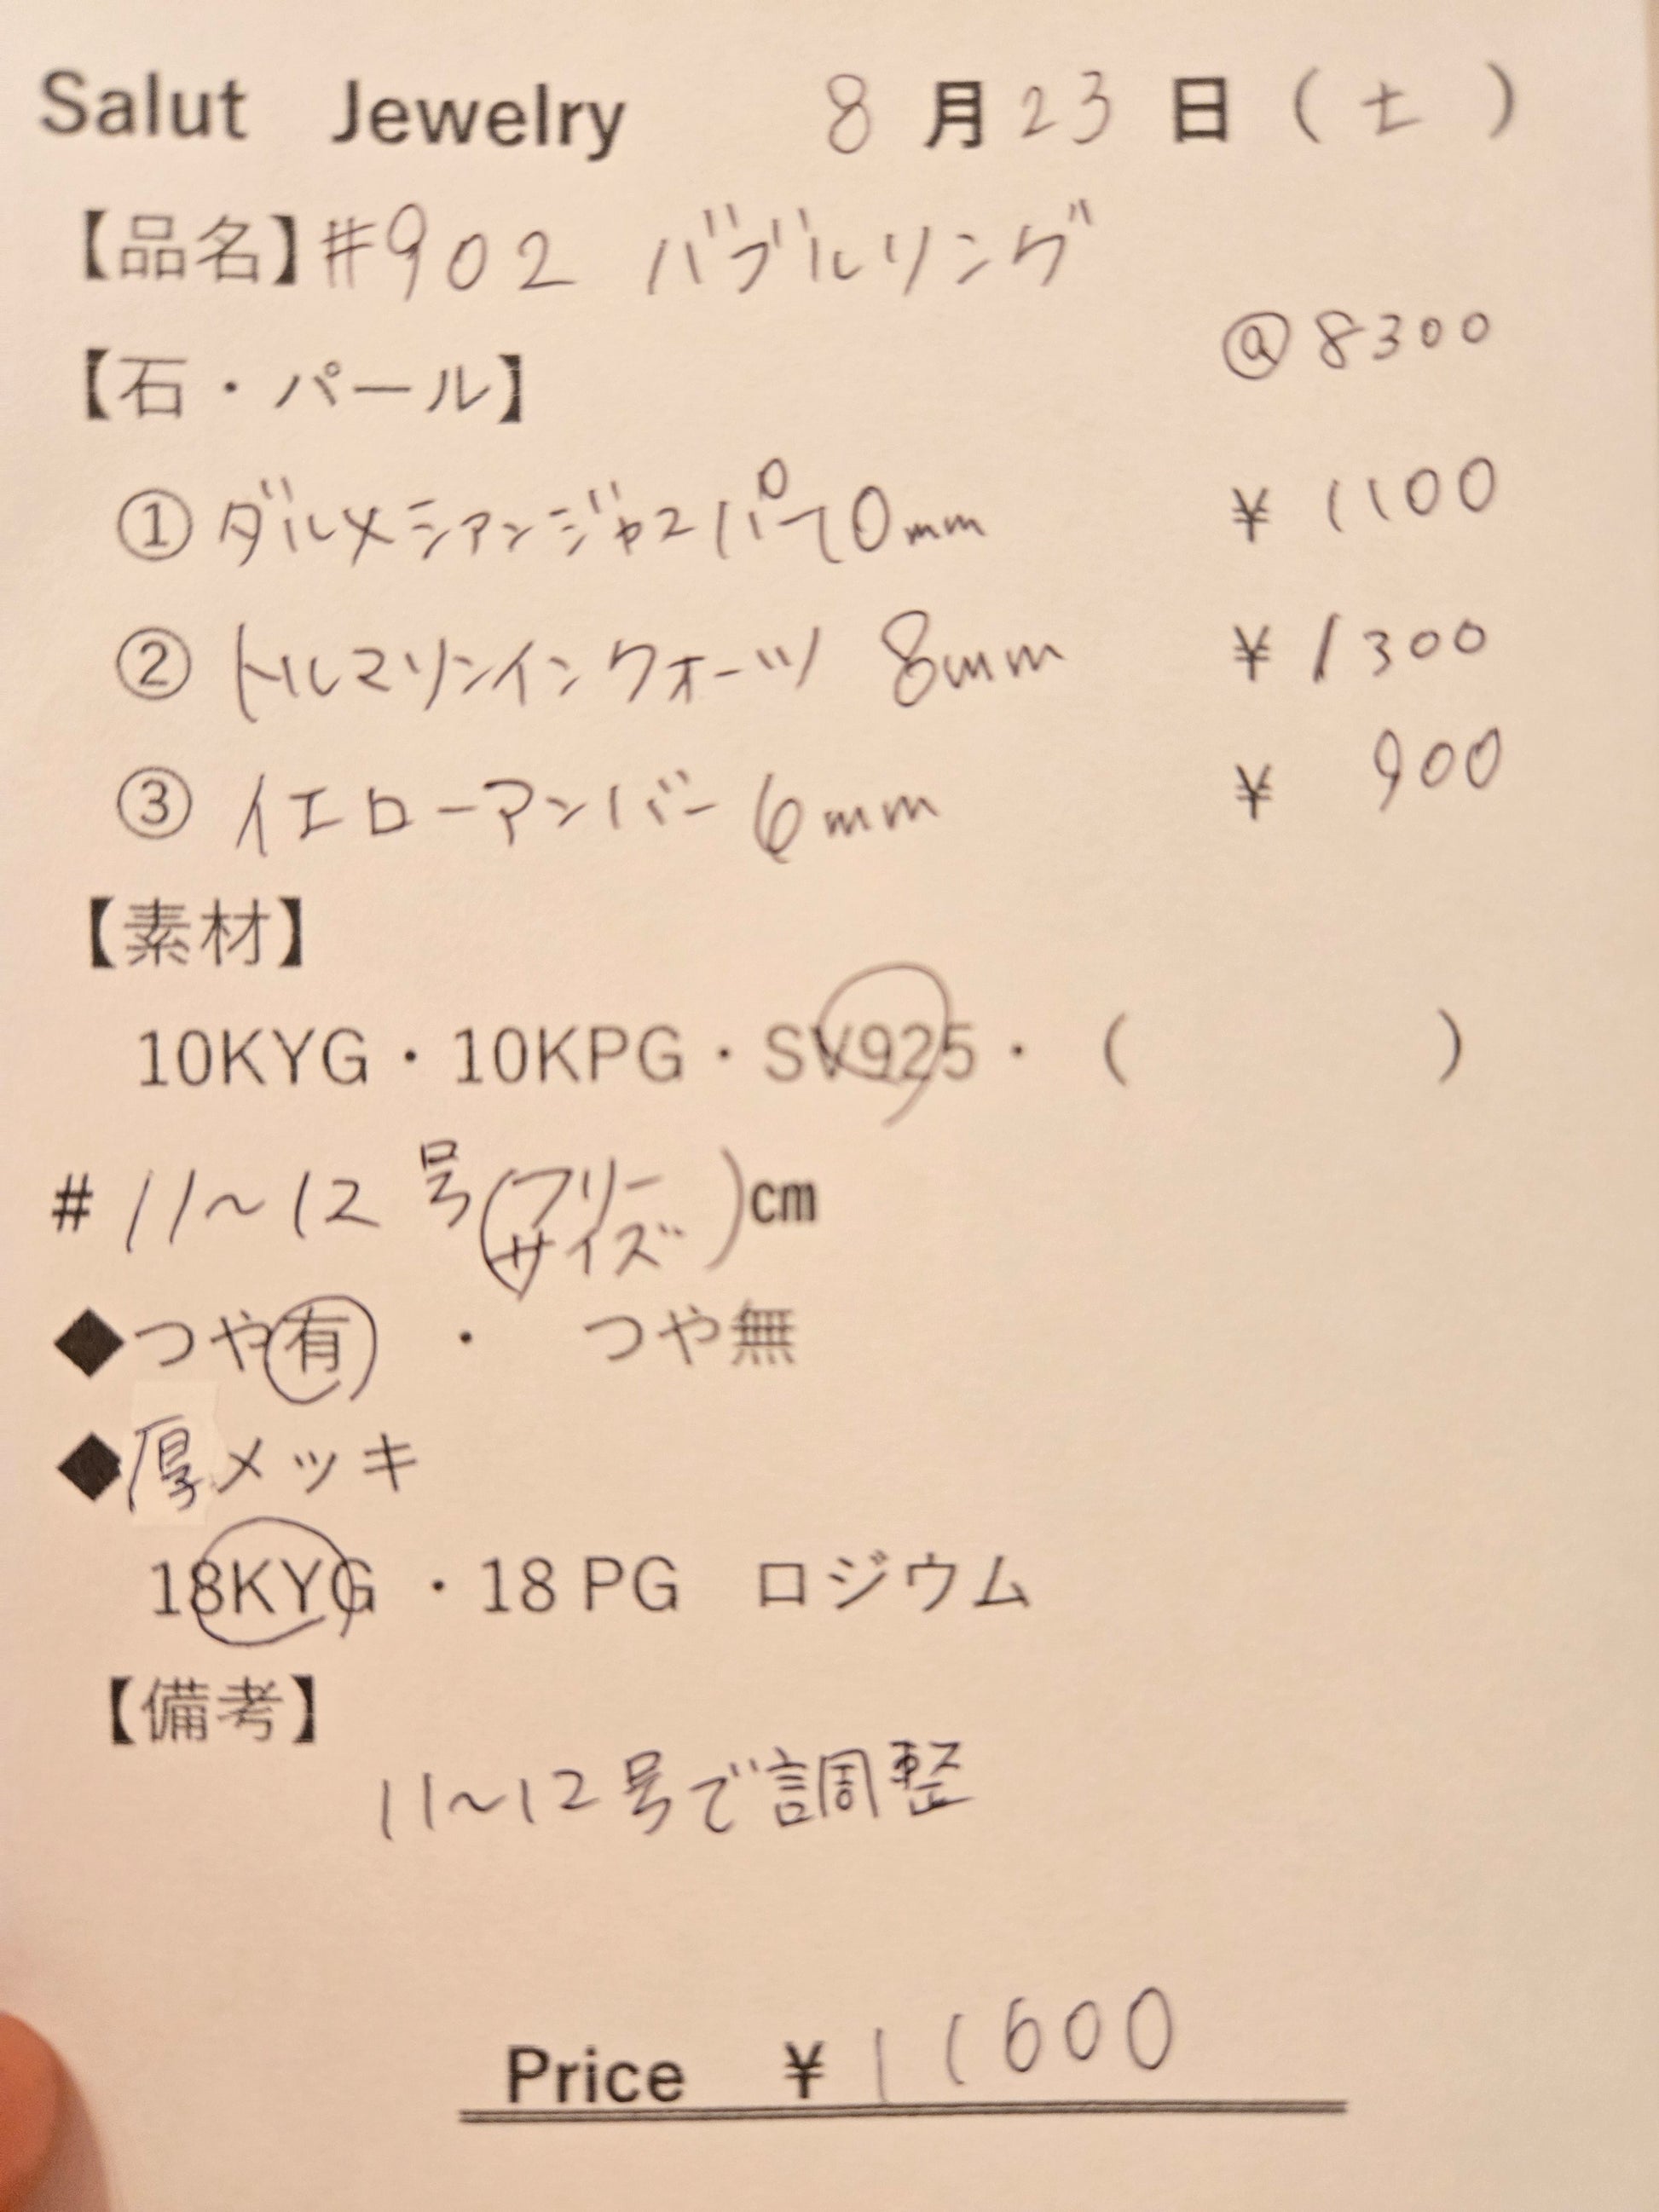 Salut Jewelry 8月23日（土）
【品名】#902 バブルリング
@8300
【石・パール】
① ダルメシアンジャスパー10mm ¥1100
② トルマリンインクォーツ 8mm ¥1300
③ イエローアンバー 6mm ¥900
【素材】
10KYG・10KPG・SV925・（ ）
# 11～12号(フリーサイズ)cm
◆つや有 ・ つや無
◆厚メッキ
18KYG ・18 PG ロジウム
【備考】
11～12号で調整
Price ¥11600